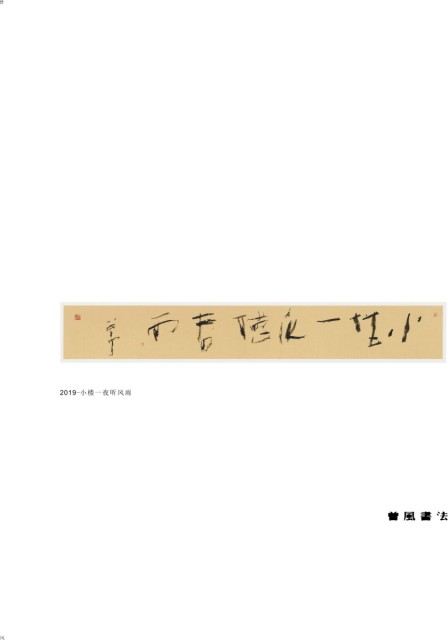 小樓一夜聽春雨
2019-小楼一夜听风雨
曾風書法